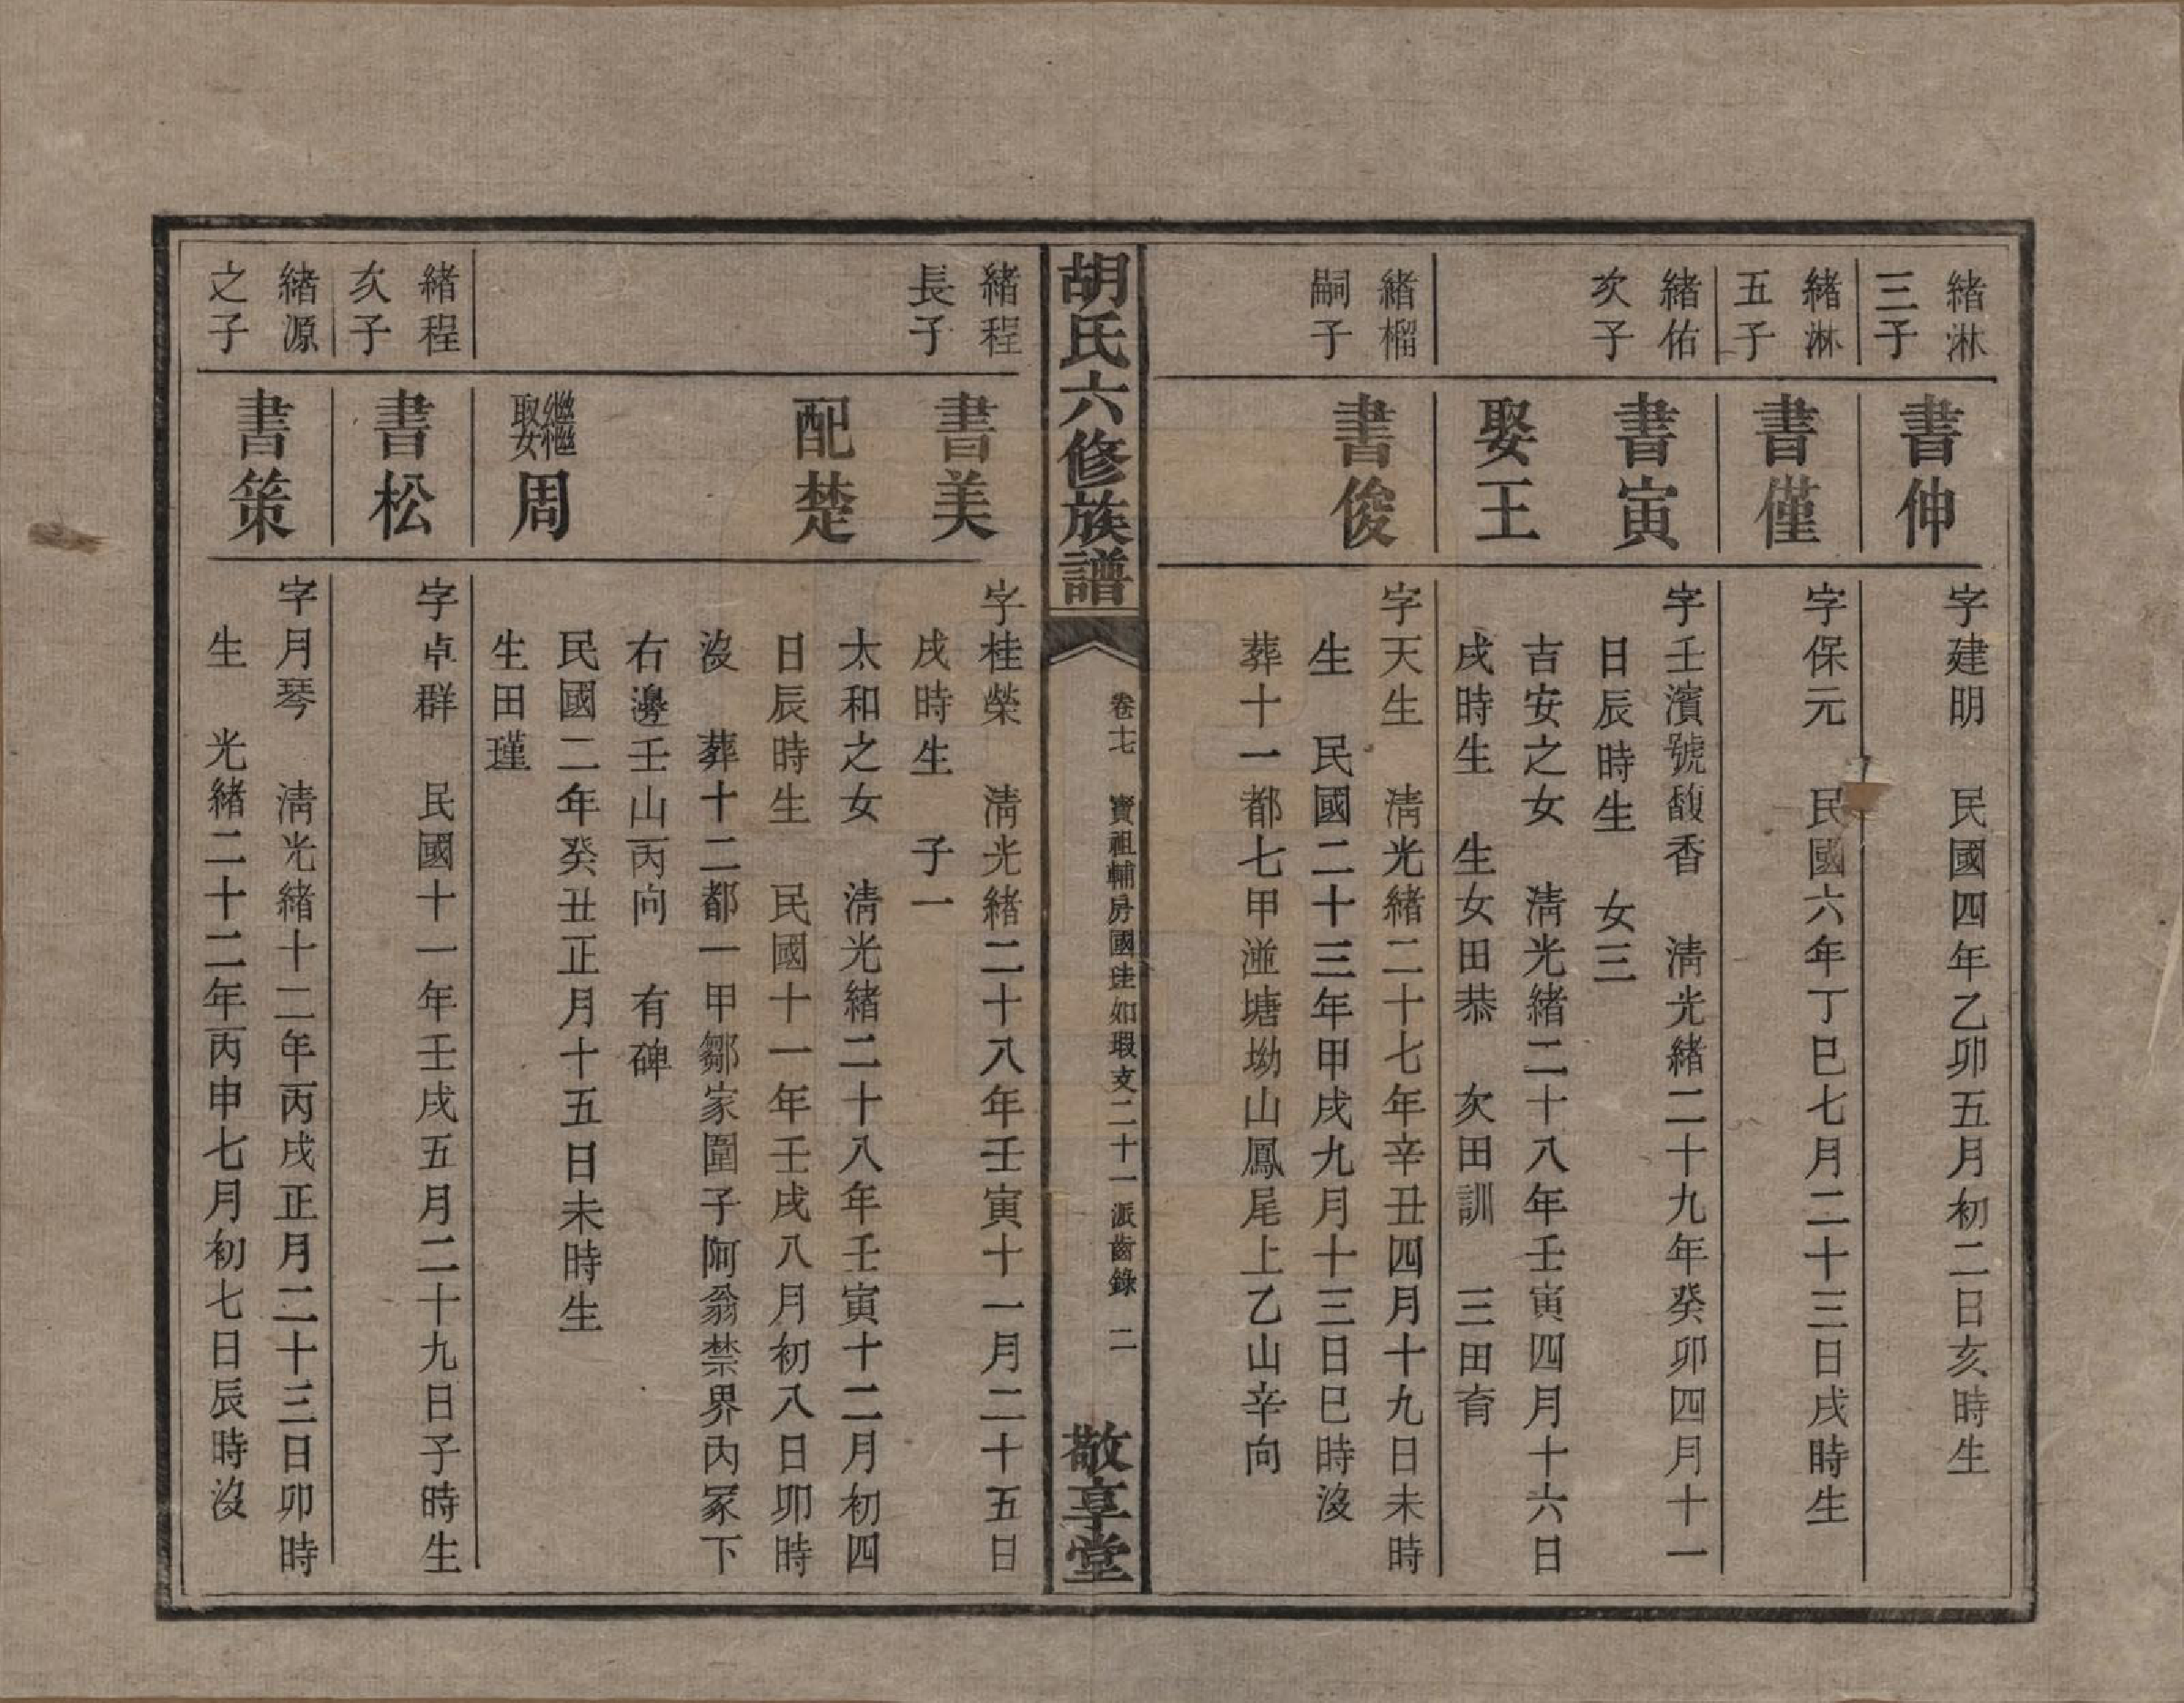 緒淋
三子
書伸
字建明　民國四年乙卯五月初二日亥時生
緒淋
五子
書僅
字保元　民國六年丁巳七月二十三日戌時生
緒佑
次子
書寅
字壬濱號馥香　清光緒二十九年癸卯四月十一
日辰時生　女三
娶王
吉安之女　清光緒二十八年壬寅四月十六日
戌時生　生女田恭　次田訓　三田育
緒榴
嗣子
書俊
字天生　清光緒二十七年辛丑四月十九日未時
生　民國二十三年甲戌九月十三日巳時沒
葬十一都七甲塘坳山鳳尾上乙山辛向
胡氏六修族譜
卷七　寶祖輔房國如瑕支二十一派齒錄　二
敬享堂
緒程
長子
書美
字桂榮　清光緒二十八年壬寅十一月二十五日
戌時生　子一
配楚
太和之女　清光緒二十八年壬寅十二月初四
日辰時生　民國十一年壬戌八月初八日卯時
沒　葬十二都一甲鄒家園子阿翁禁界內冢下
右邊壬山丙向　有碑
繼娶周
民國二年癸丑正月十五日未時生
生田瑾
緒程
次子
書松
字卓群　民國十一年壬戌五月二十九日子時生
緒源
之子
書策
字月琴　清光緒十二年丙戌正月二十三日卯時
生　光緒二十二年丙申七月初七日辰時沒